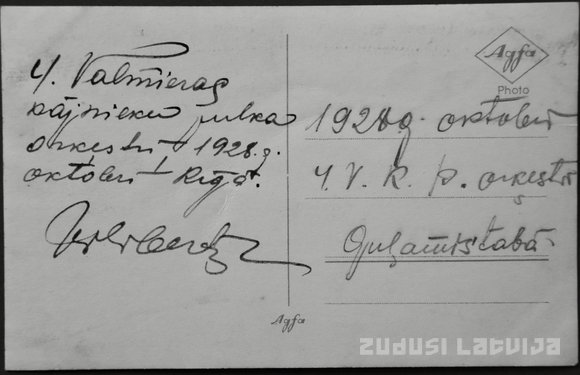 4. Valmieras
kājnieku pulka
orķestrī 1928.g.
oktobrī Rīgā.
Agfa
Photo
1928g. oktobrī
4. V. k. p. orķestris
Guļamistabā
Agfa
ZUDUSI LATVIJA